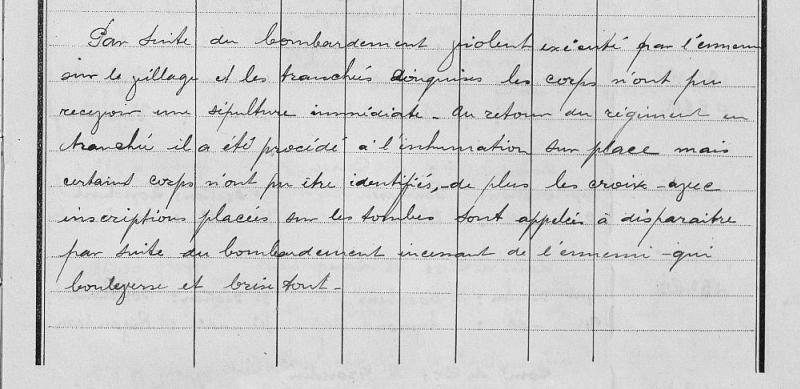 Par suite du bombardement violent exécuté par l'ennemi
sur le village et les tranchées conquises les corps n'ont pu
recevoir une sépulture immédiate - Au retour du régiment en
tranchée il a été procédé à l'inhumation sur place mais
certains corps n'ont pu être identifiés, - de plus les croix - avec
inscriptions placées sur les tombes sont appelées à disparaitre
par suite du bombardement incessant de l'ennemi - qui
bouleverse et brise tout -